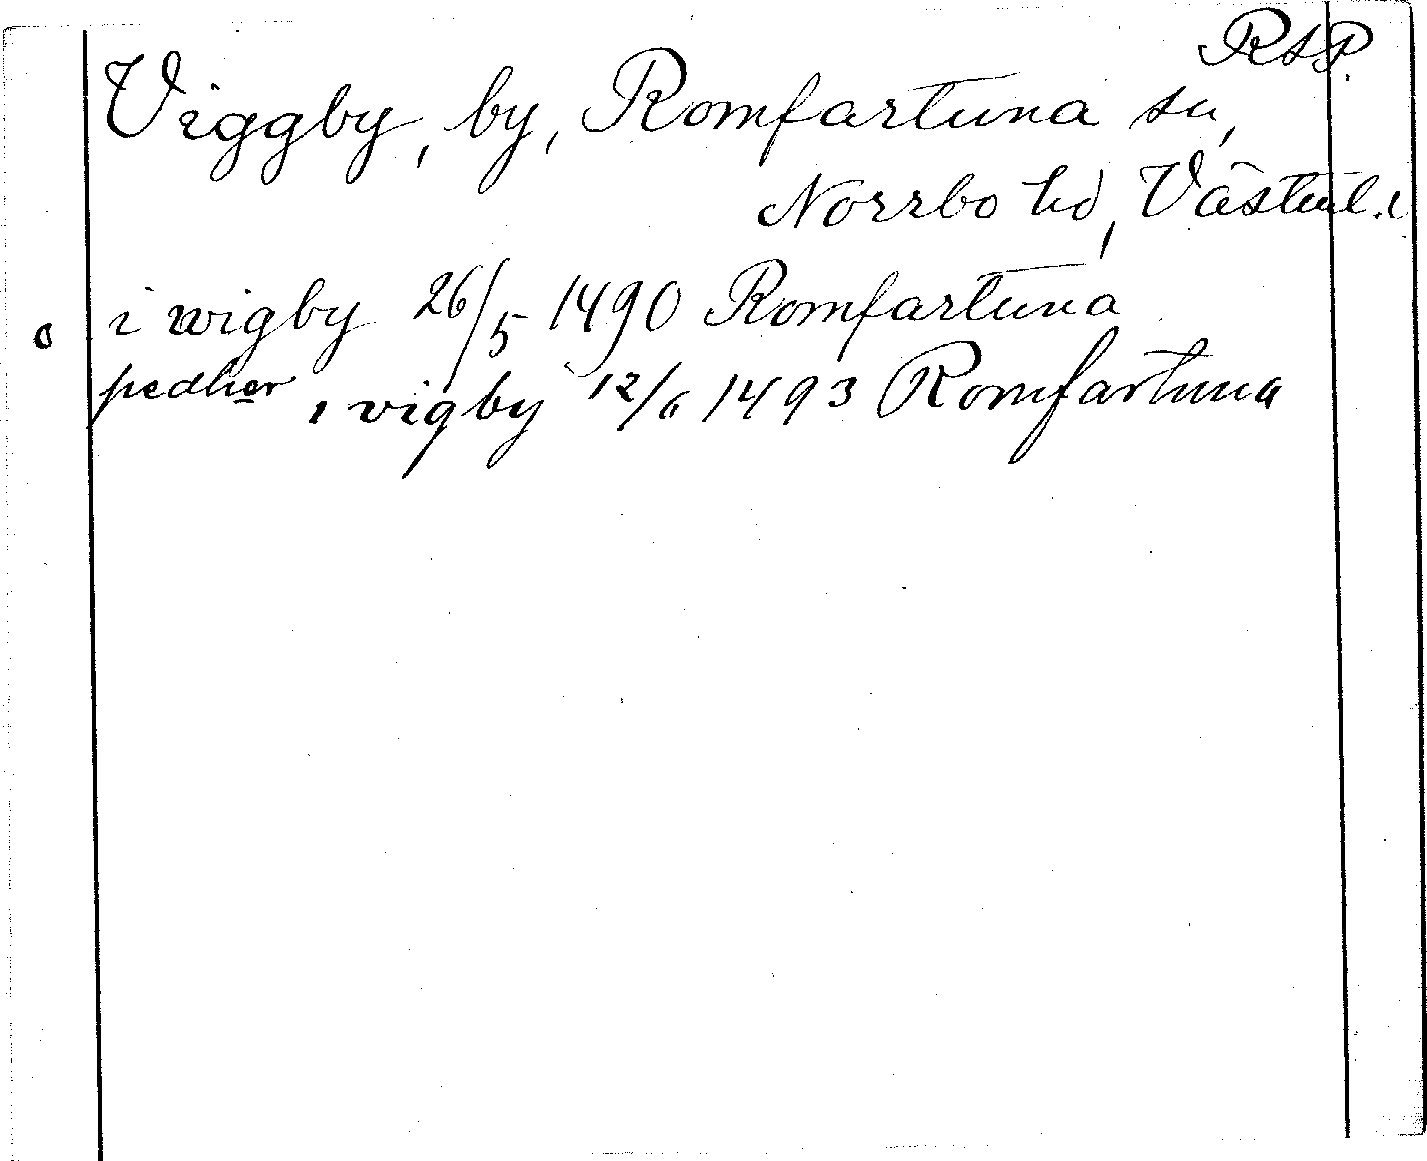 RAP.
Viggby, by, Romfartuna sn,
Norrbo hd, Västml. l
i wigby 26/5 1490 Romfartuna
pedher i vigby 12/6 1493 Romfartuna